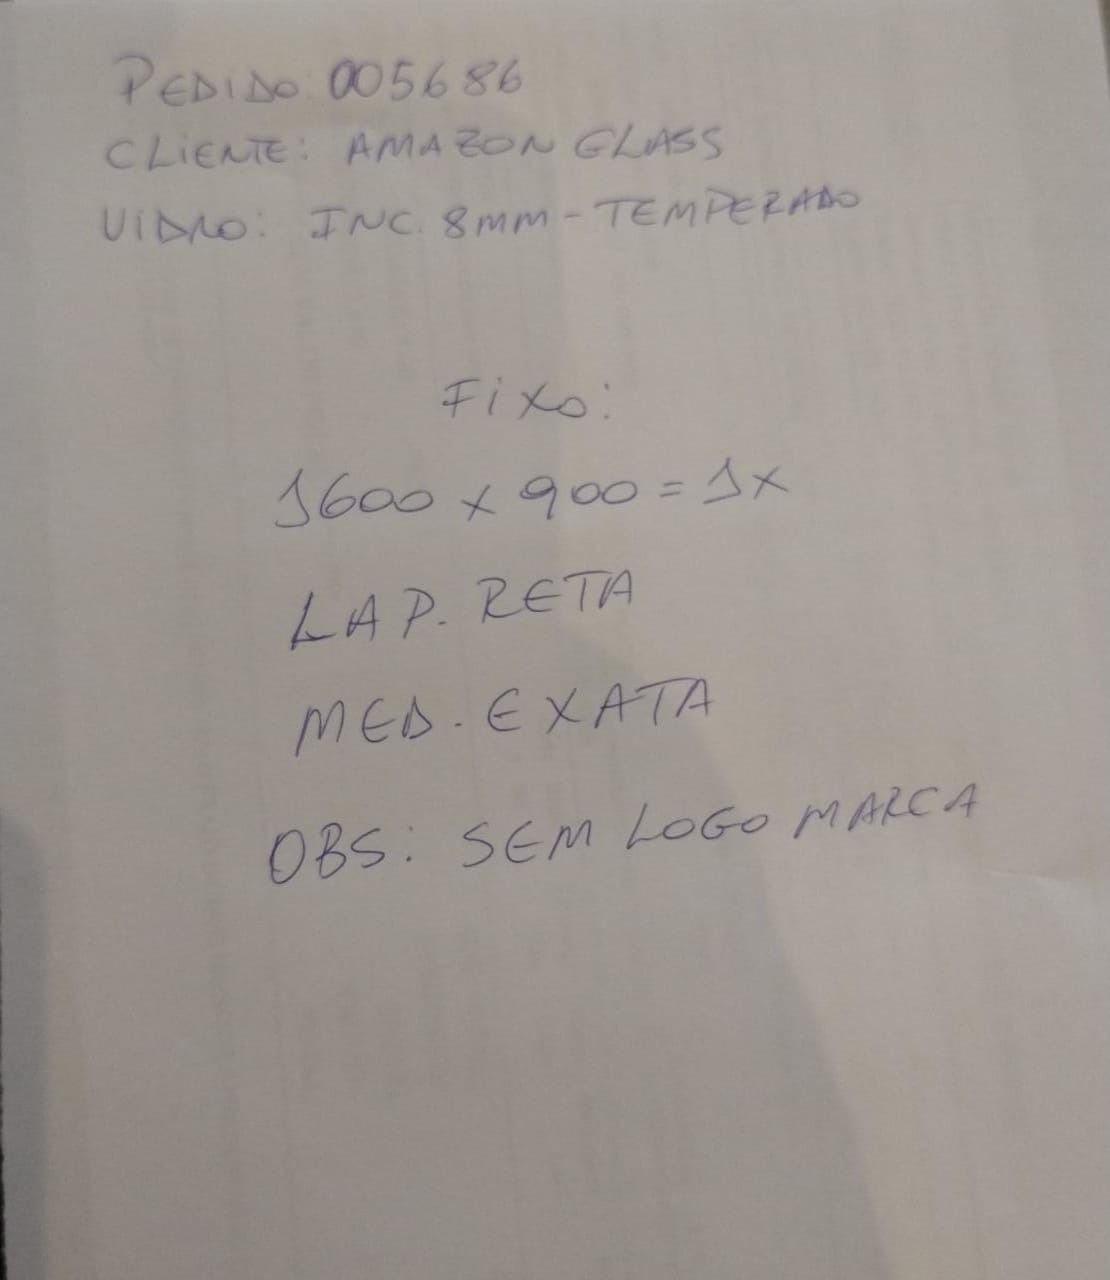 PEDIDO: 005686
CLIENTE: AMAZON GLASS
VIDRO: INC. 8mm - TEMPERADO
FiXO:
1600 x 900 = 1x
LAP. RETA
MED. EXATA
OBS: SEM LOGO MARCA